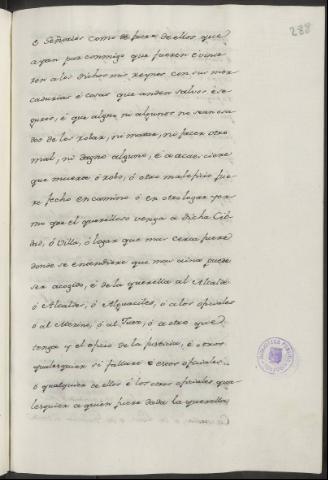 288
e Señorios como de fuera de ellos que
ayan paz conmigo que fueren é vinie
ren a los dichos mis reynos con sus mer
cadurias é cosas que anden salvos é se
guros, é que alguno, ni algunos no sean osa
dos de los robar, ni matar, ni facer otro
mal, ni dagno alguno, é si acaeciere
que muerte ó robo, ó otro maleficio fue
re fecho en camino ó en otro lugar yer
mo que el querelloso venga a dicha Cib
dad, ó Villa, ó lugar que mas cerca fuere
donde se entendiere que mas aina puede
ser acogido, é de la querella al Alcalde
ó Alcaldes, ó Alguaciles, ó a los oficiales
ó al Merino, ó al Juez, ó a otro que
tenga y el oficio de la justicia, é otros
qualesquier si fallare é esos oficiales
o qualquier de ellos é los otros oficiales qua
lesquier a quien fuere dada la querella,